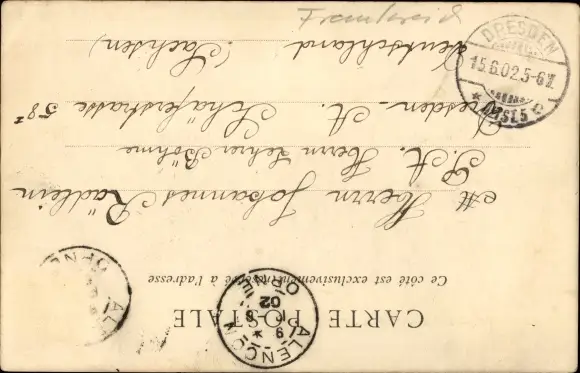 CARTE POSTALE
Ce côté est exclusivement réservé à l'adresse
ALENÇON
ORNE
02
Herrn Johannes Rädlein
P. A. Herrn Lehrer Böhme
Dresden - A. Schäferstrasse 58 II
Deutschland (Sachsen)
Frankreich
DRESDEN
15.6.02.5-6N.